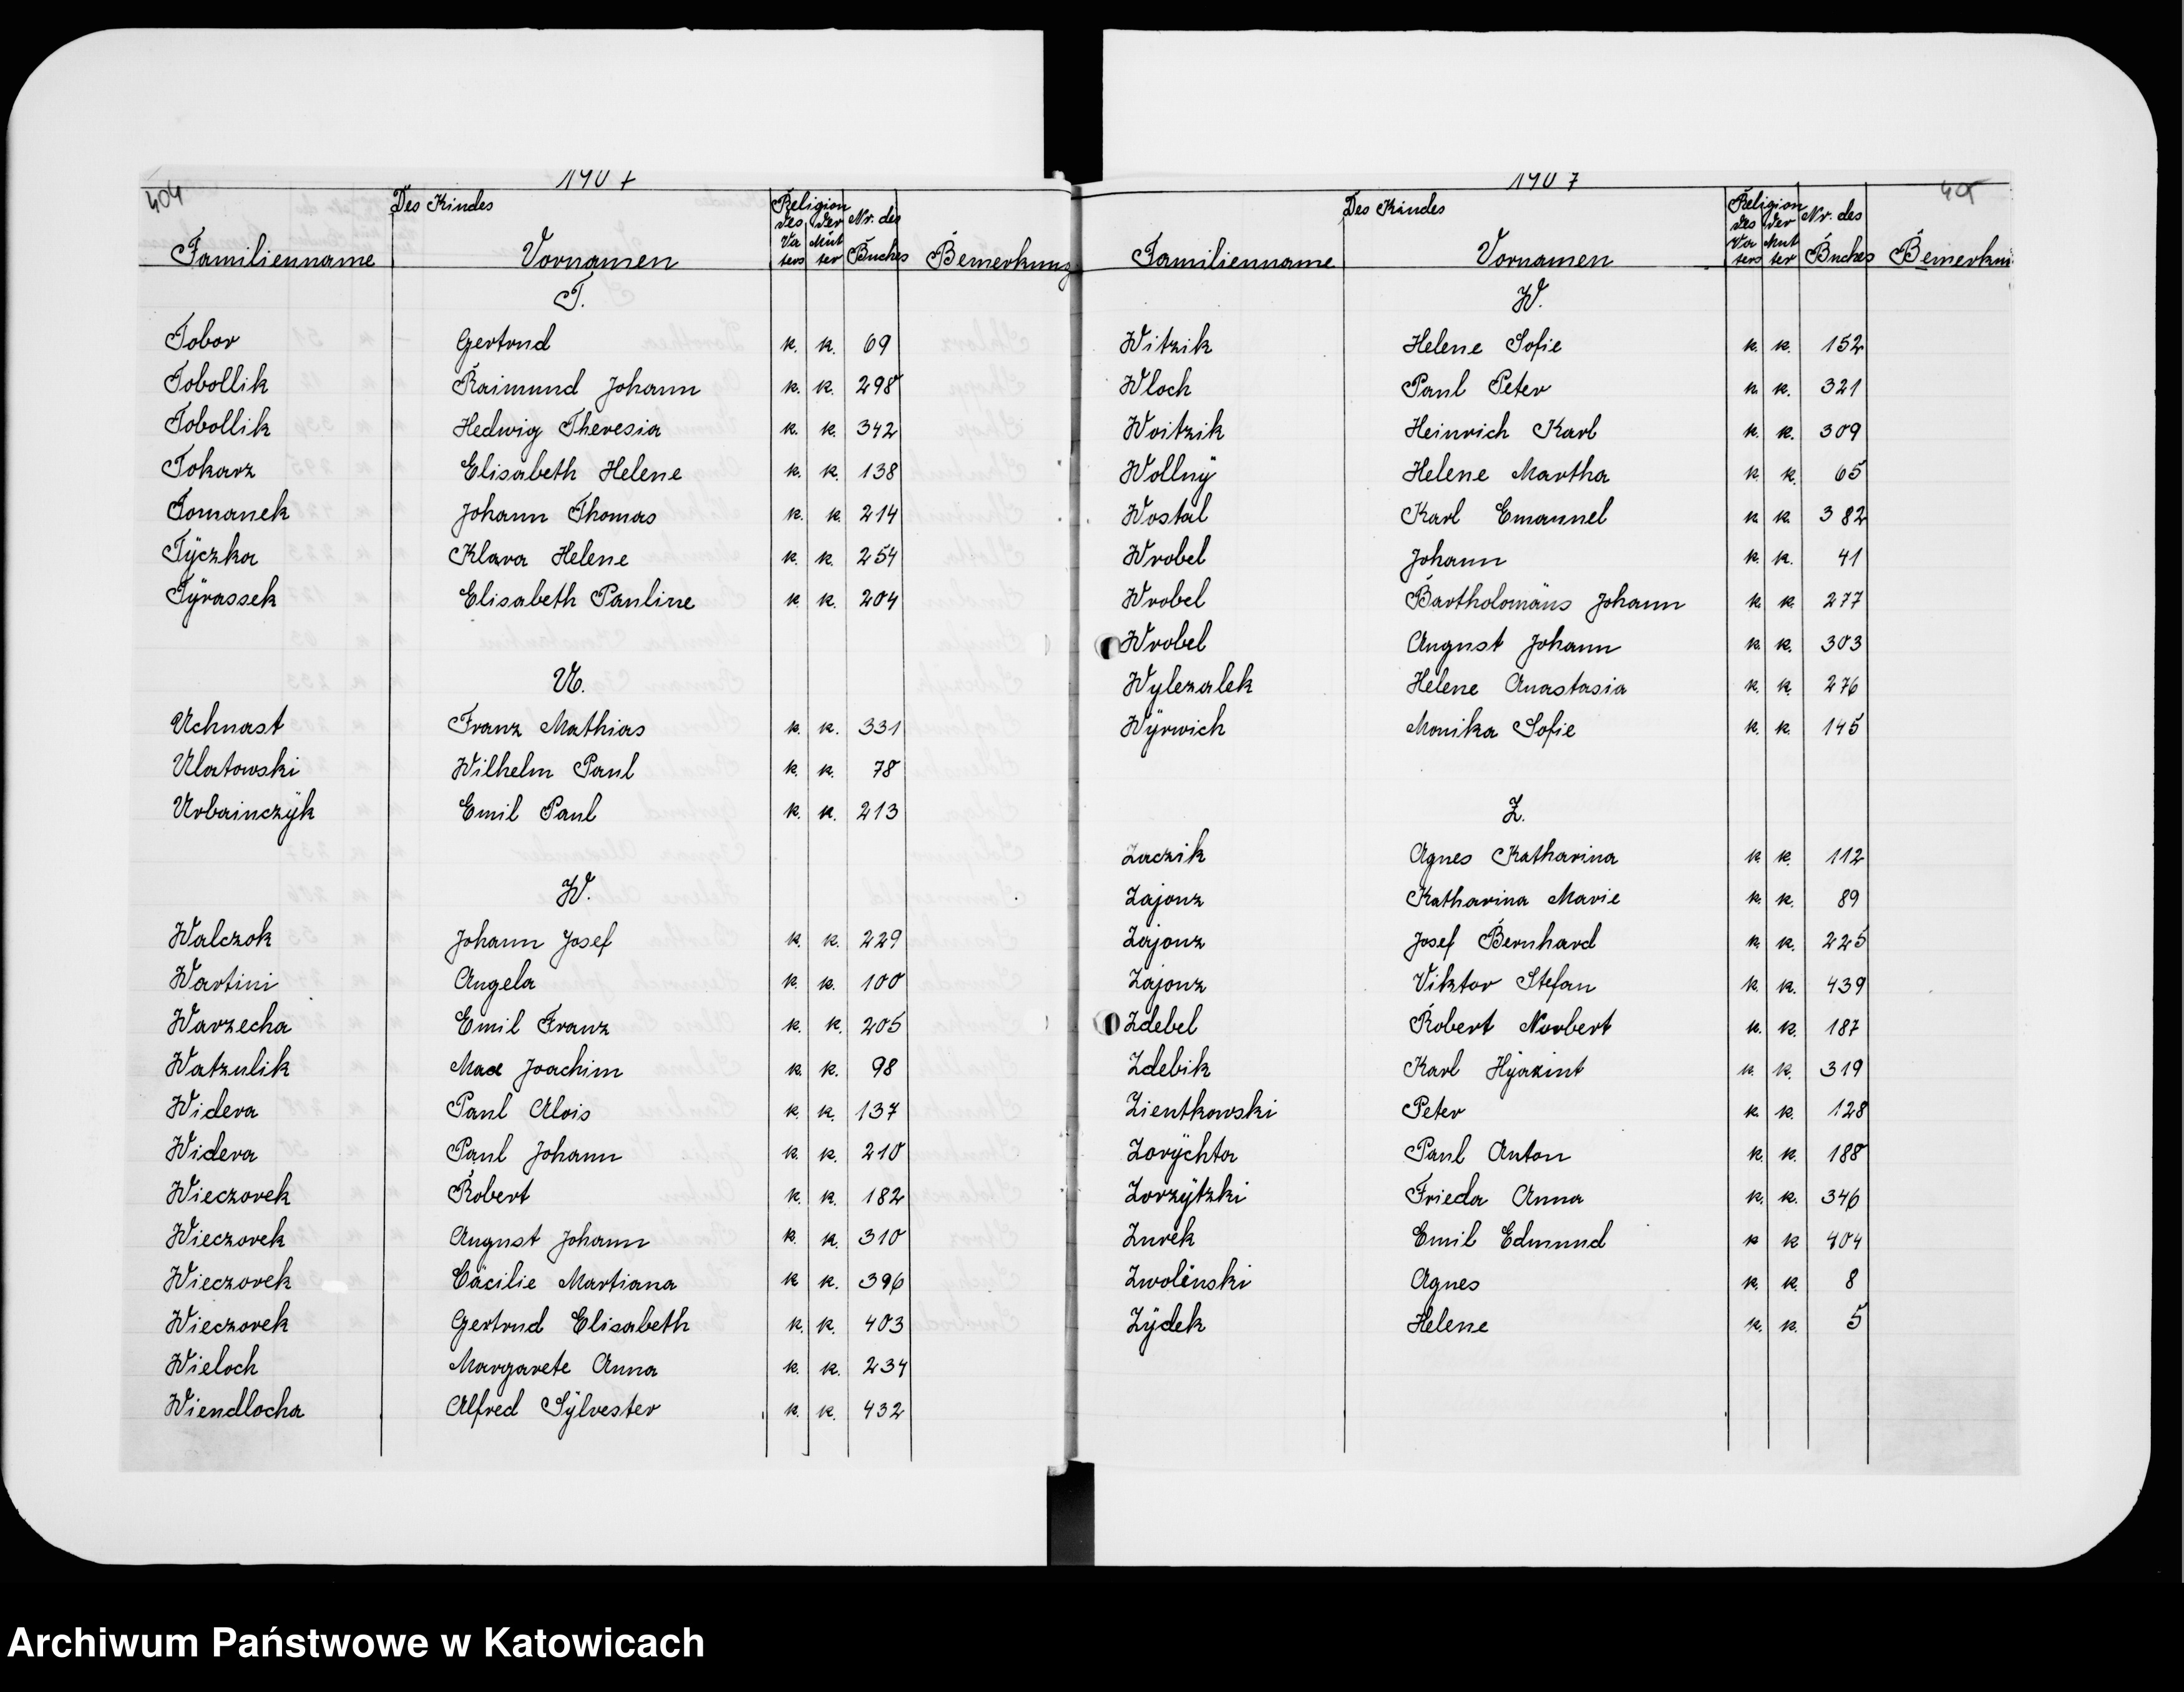 404
1907
Des Kindes Religion Nr. des
des Vaters der Mutter
Familienname Vornamen Buches Bemerkung
T.
Tobor Gertrud k. k. 69
Tobollik Raimund Johann k. k. 298
Tobollik Hedwig Theresia k. k. 342
Tokarz Elisabeth Helene k. k. 138
Tomanek Johann Thomas k. k. 214
Tÿczka Klara Helene k. k. 254
Tÿrassek Elisabeth Pauline k k. 204
U.
Uchnast Franz Mathias k. k. 331
Ulatowski Wilhelm Paul k. k. 78
Urbainczÿk Emil Paul k. k. 213
W.
Walczok Johann Josef k. k. 229
Wartini Angela k. k. 100
Warzecha Emil Franz k. k. 205
Watzulik Max Joachim k. k. 98
Widera Paul Alois k. k. 137
Widera Paul Johann k. k. 210
Wieczorek Robert k. k. 182
Wieczorek August Johann k. k. 310
Wieczorek Cäcilie Martiana k k. 396
Wieczorek Gertrud Elisabeth k. k. 403
Wieloch Margarete Anna k. k. 234
Wiendlocha Alfred Sÿlvester k. k. 432
1907
405
Des Kindes Religion Nr. des
des Vaters der Mutter
Familienname Vornamen Buches Bemerkun
W.
Witzik Helene Sofie k. k. 152
Wloch Paul Peter k. k. 321
Woitzik Heinrich Karl k. k. 309
Wollnÿ Helene Martha k. k. 65
Wostal Karl Emanuel k. k. 382
Wrobel Johann k. k. 41
Wrobel Bartholomäus Johann k. k 277
Wrobel August Johann k. k. 303
Wylezalek Helene Anastasia k. k. 276
Wÿrwich Monika Sofie k. k. 145
Z.
Zaczik Agnes Katharina k k. 112
Zajonz Katharina Marie k. k. 89
Zajonz Josef Bernhard k. k. 225
Zajonz Viktor Stefan k. k. 439
Zdebel Robert Norbert k. k. 187
Zdebik Karl Hÿazint k. k. 319
Zientkowski Peter k. k. 128
Zorÿchta Paul Anton k. k. 188
Zorzÿtzki Frieda Anna k. k. 346
Zurek Emil Edmund k k 404
Zwolinski Agnes k. k. 8
Zÿdek Helene k. k. 5
Archiwum Państwowe w Katowicach